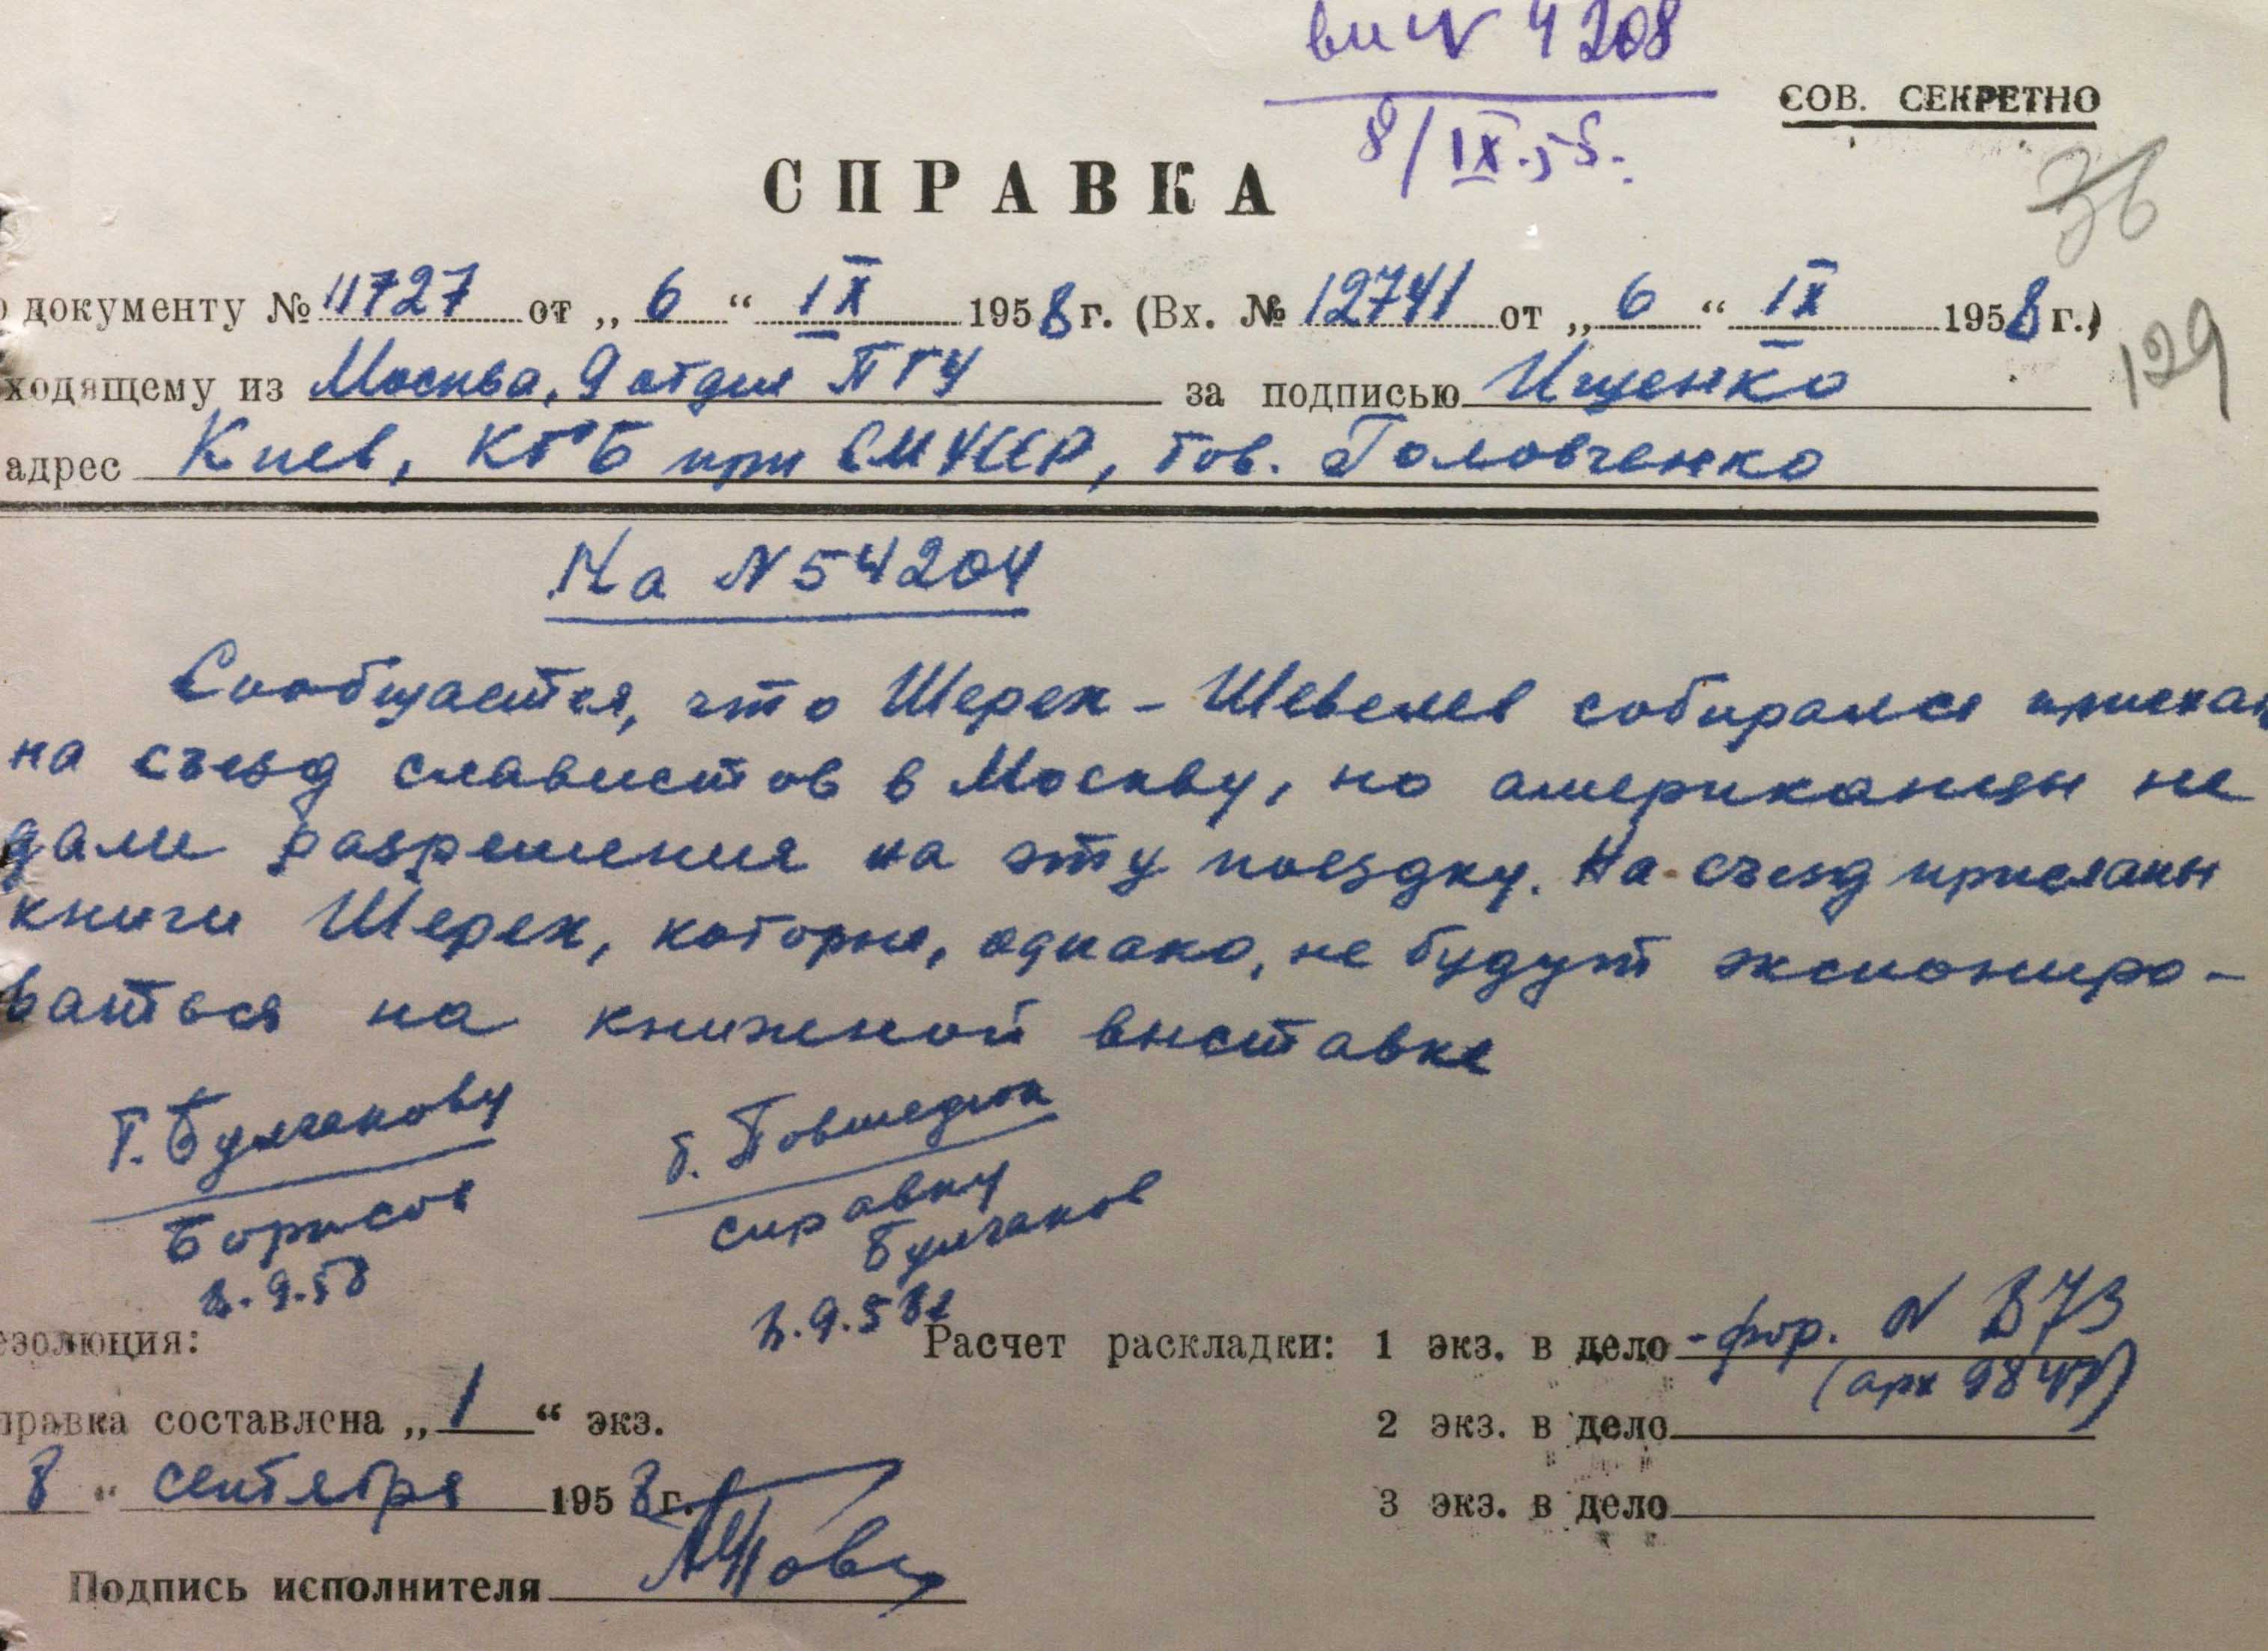 вх № 4208
8/IX.58.
СОВ. СЕКРЕТНО
СПРАВКА
36
о документу № 11727 от „ 6 “ IX 1958 г. (Вх. № 12741 от „ 6 “ IX 1958 г.)
129
ходящему из Москва, 9 отдел ПГУ за подписью Ищенко
адрес Киев, КГБ при СМ УССР, тов. Головченко
На № 54204
Сообщается, что Шерех - Шевелев собирался приехать
на съезд славистов в Москву, но американцы не
дали разрешения на эту поездку. На съезд присланы
книги Шерех, которые, однако, не будут экспониро-
ваться на книжной выставке
т. Булчакову
т. Повшедюк
Борисов
справку
Булчаков
8.9.58
8.9.58г
езолюция:
Расчет раскладки: 1 экз. в дело - фор. N 873
(арх 9847)
правка составлена „ 1 “ экз.
2 экз. в дело
8 “ сентября 1958 г.
3 экз. в дело
Подпись исполнителя